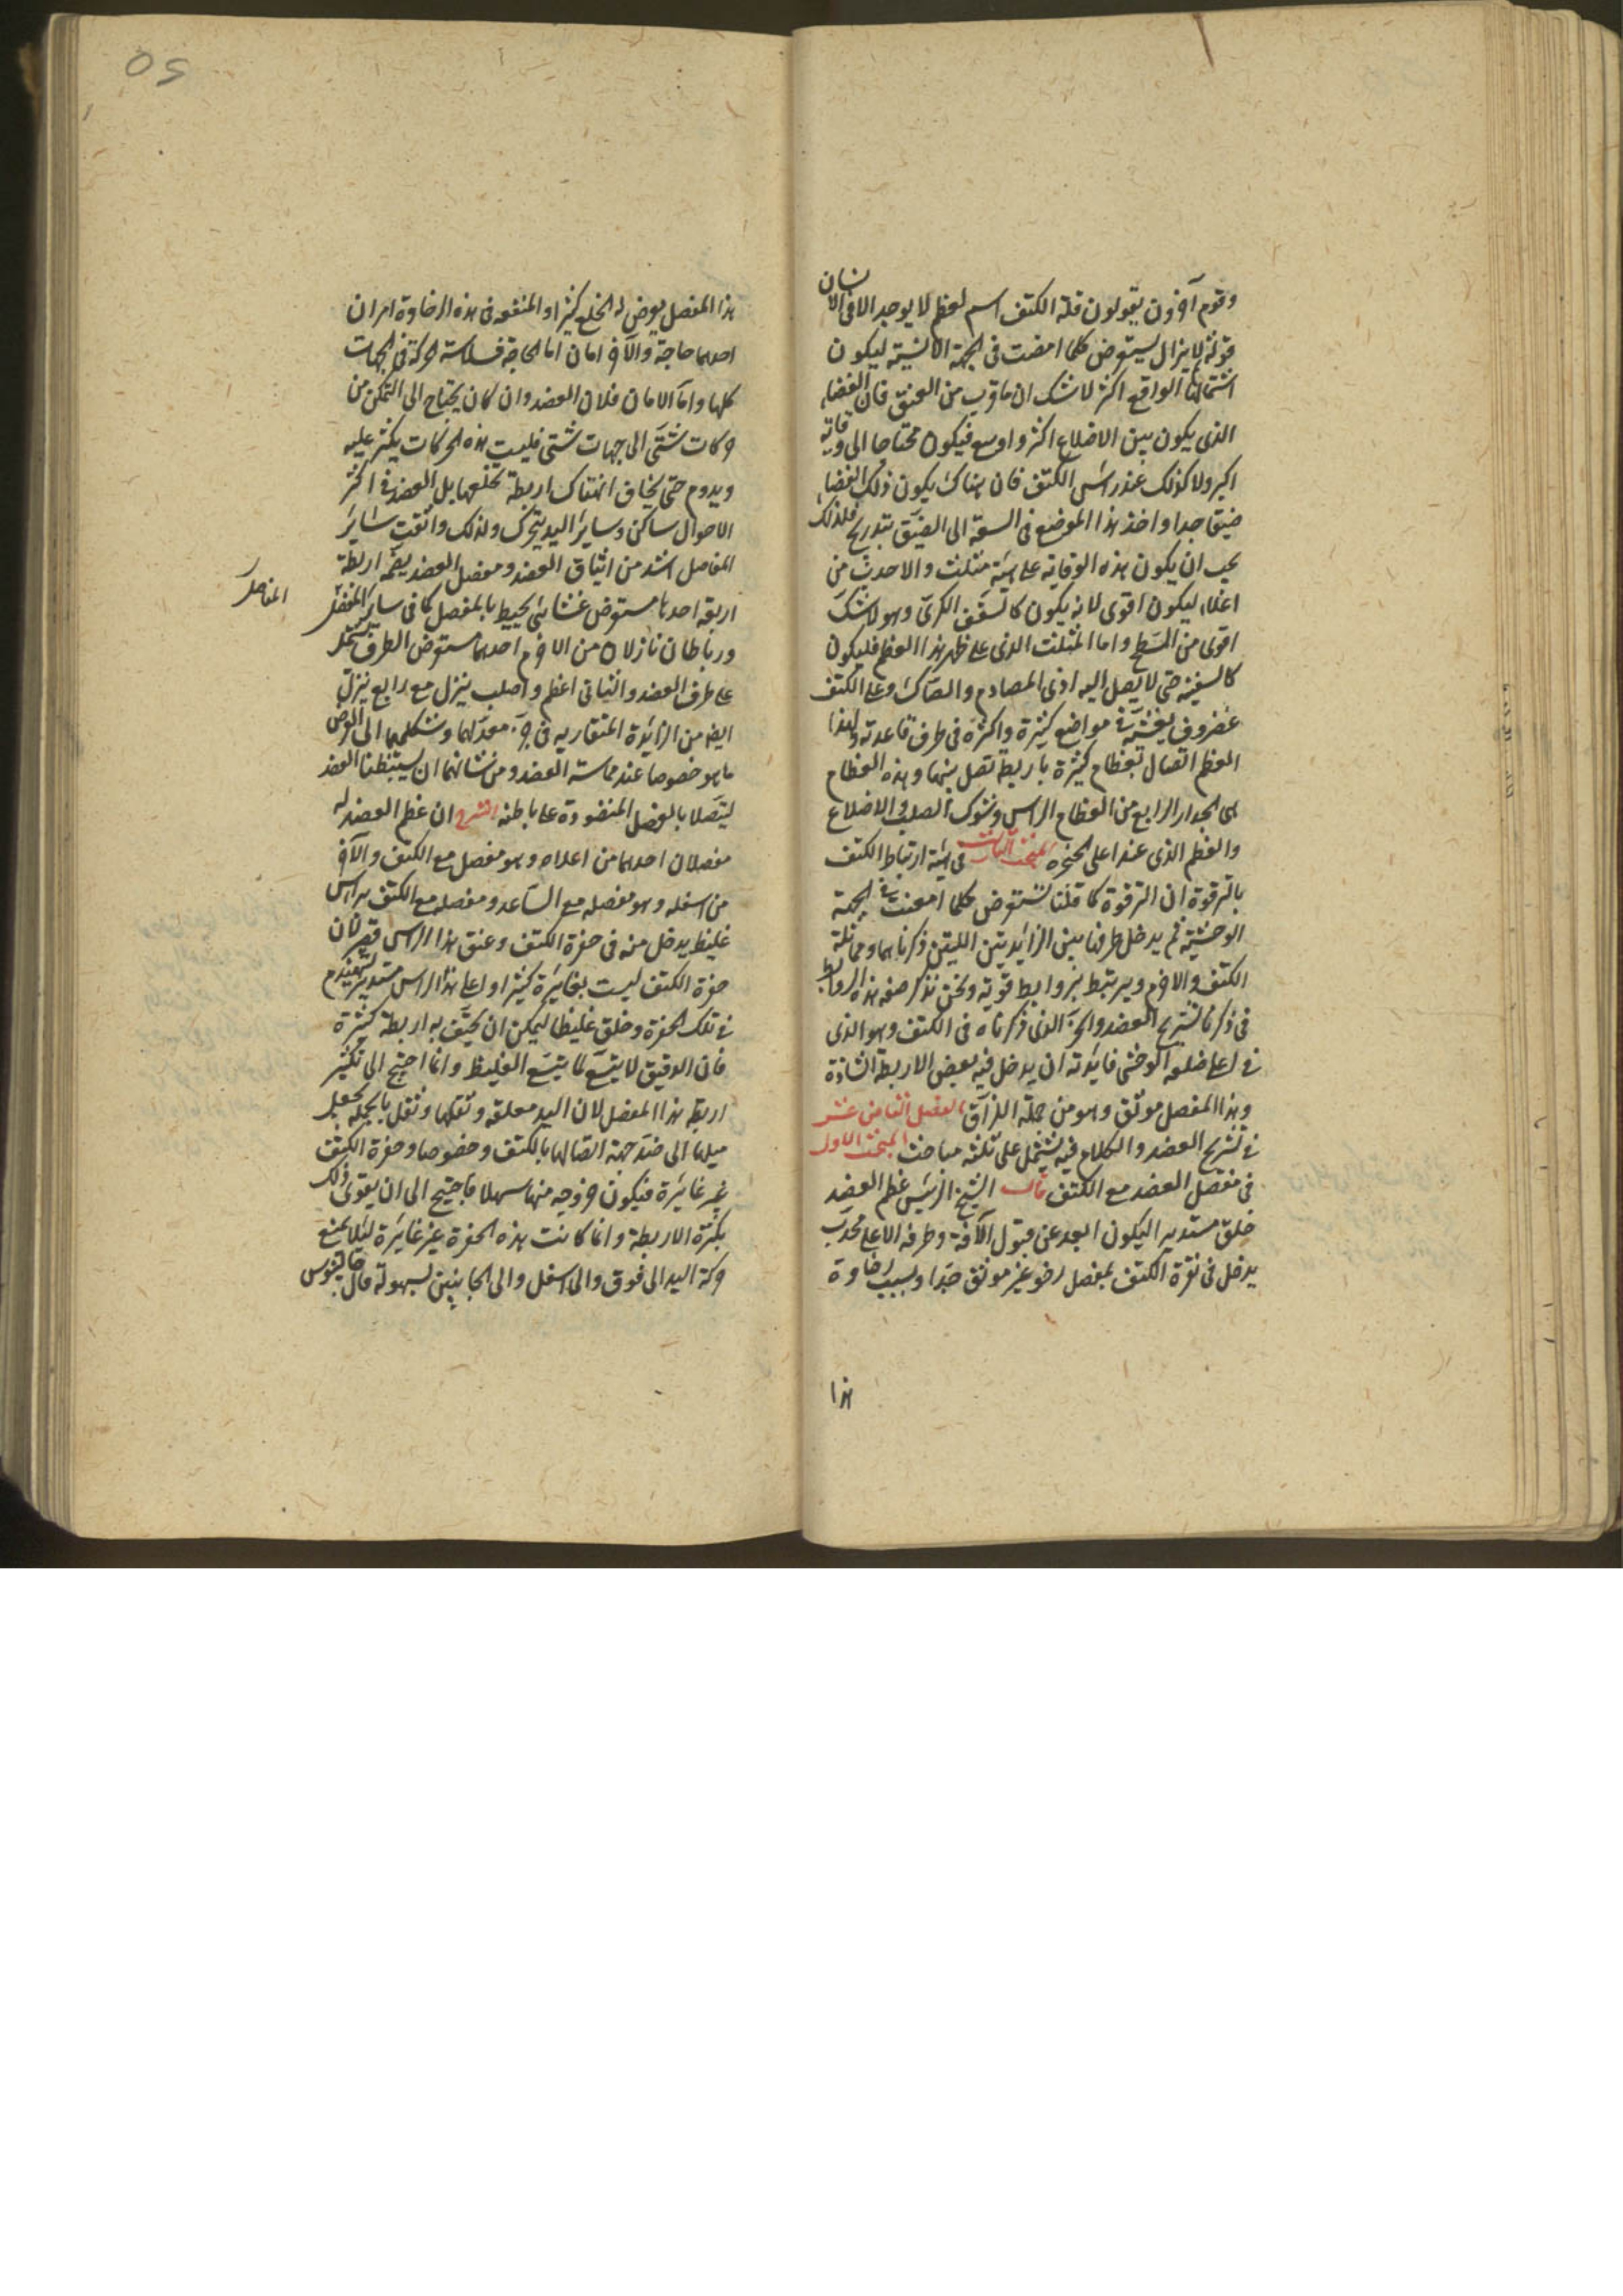 وقوم آخرون يقولون قلة الكتف اسم لعظم لا يوجد الا فى الانسان
قوله لا يزال يستعرض كلما امعنت فى الجهة الانسية ليكون
اشتمالها الواقع اكثر لا شك ان ما قرب من العنق فان الفضاء
الذى يكون بين الاضلاع اكثر واوسع فيكون محتاجا الى وقاية
اكبر ولا كذلك عند راس الكتف فان هناك يكون ذلك الفضاء
ضيقا جدا واخذ هذا الموضع فى السعة الى الضيق بتدريج فلذلك
يجب ان يكون هذه الوقاية على هيئة مثلث والاحديث من
اعلاه ليكون اقوى لانه يكون كالسقف الكرى وهو لا شك
اقوى من المسطح واما المثلث الذى على ظهر هذا العظم فليكون
كالسفينة حتى لا يصل اليه اذى المصادم والصاك وعلى الكتف
غضروف يغشيه فى مواضع كثيرة واكثره فى طرف قاعدته ولهذا
العظم اتصال بعظام كثيرة باربطة تصل بينها وهذه العظام
هى الجدار الرابع من العظام الراس وشوك الصلب والاضلاع
والعظم الذى عند اعلى الحنجرة المبحث الثالث فى هيئة ارتباط الكتف
بالترقوة ان الترقوة كما قلنا تستعرض كلما امعنت فى الجهة
الوحشية ثم يدخل طرفها بين الزايدتين اللتين ذكرناهما ومماثلة
الكتف والاخرم ويرتبط بروابط قوية ونحن نذكر صفة هذه الروابط
فى ذكرنا تشريح العضد والجزء الذى ذكرناه فى الكتف وهو الذى
فى اعلى ضلعه الوحشى فايدته ان يدخل فيه بعض الاربطة الشادة
وهذا المفصل موثق وهو من جملة اللزاق الفصل الثامن عشر
فى تشريح العضد والكلام فيه يشتمل على ثلثة مباحث المبحث الاول
فى مفصل العضد مع الكتف قال الشيخ الرئيس عظم العضد
خلق مستديرا ليكون ابعد عن قبول الآفة وطرفه الاعلى محدب
يدخل فى نقرة الكتف بمفصل رخو غير موثق جدا وبسبب رخاوة
هذا
50
هذا المفصل يعرض له الخلع كثيرا والمنفعة فى هذه الرخاوة امران
احدهما حاجة والآخر امان اما الحاجة فسلاسة الحركة فى الجهات
كلها واما الامان فلان العضد وان كان يحتاج الى التمكن من
حركات شتى الى جهات شتى فليست هذه الحركات يكثر عليه
ويدوم حتى يخاف انهتاك اربطة تخلعها بل العضد فى اكثر
الاحوال ساكن وساير اليد يتحرك ولذلك واثقت ساير
المفاصل اشد من ايثاق العضد ومفصل العضد يضمه اربطة
اربعة احدها مستعرض غشايى يحيط بالمفصل كما فى ساير المفصل
المفاصل
ورباطان نازلان من الاخرم احدهما مستعرض الطرف يشتمل
على طرف العضد والثانى اعظم واصلب ينزل مع رابع ينزل
ايضا من الزايدة المنقارية فى جزء معدلهما وشكلهما الى العرض
ما هو خصوصا عند مماسة العضد ومن شانهما ان يستبطنا العضد
ليتصلا بالعضل المنضودة على باطنه الشرح ان عظم العضد له
مفصلان احدهما من اعلاه وهو مفصل مع الكتف والآخر
من اسفله وهو مفصله مع الساعد ومفصله مع الكتف براس
غليظ يدخل منه فى حفرة الكتف وعنق هذا الراس قصير لان
حفرة الكتف ليست بغايرة كثيرا واعلى هذا الراس مستدير ليهندم
فى تلك الحفرة وخلق غليظا ليمكن ان يحتف به اربطة كثيرة
فان الدقيق لا يتسع لما يتسع الغليظ وانما احتيج الى تكثير
اربطة هذا المفصل لان اليد معلقه وثقلها وثقل بالجملة يحصل
ميلها الى ضد جهة اتصالها بالكتف وخصوصا وحفرة الكتف
غير غايرة فيكون خروجه منها سهلا فاحتيج الى ان يقوى ذلك
بكثرة الاربطة وانما كانت هذه الحفرة غير غايرة ليلا يمنع
حركة اليد الى فوق والى اسفل والى الجانبين بسهولة قال جالينوس